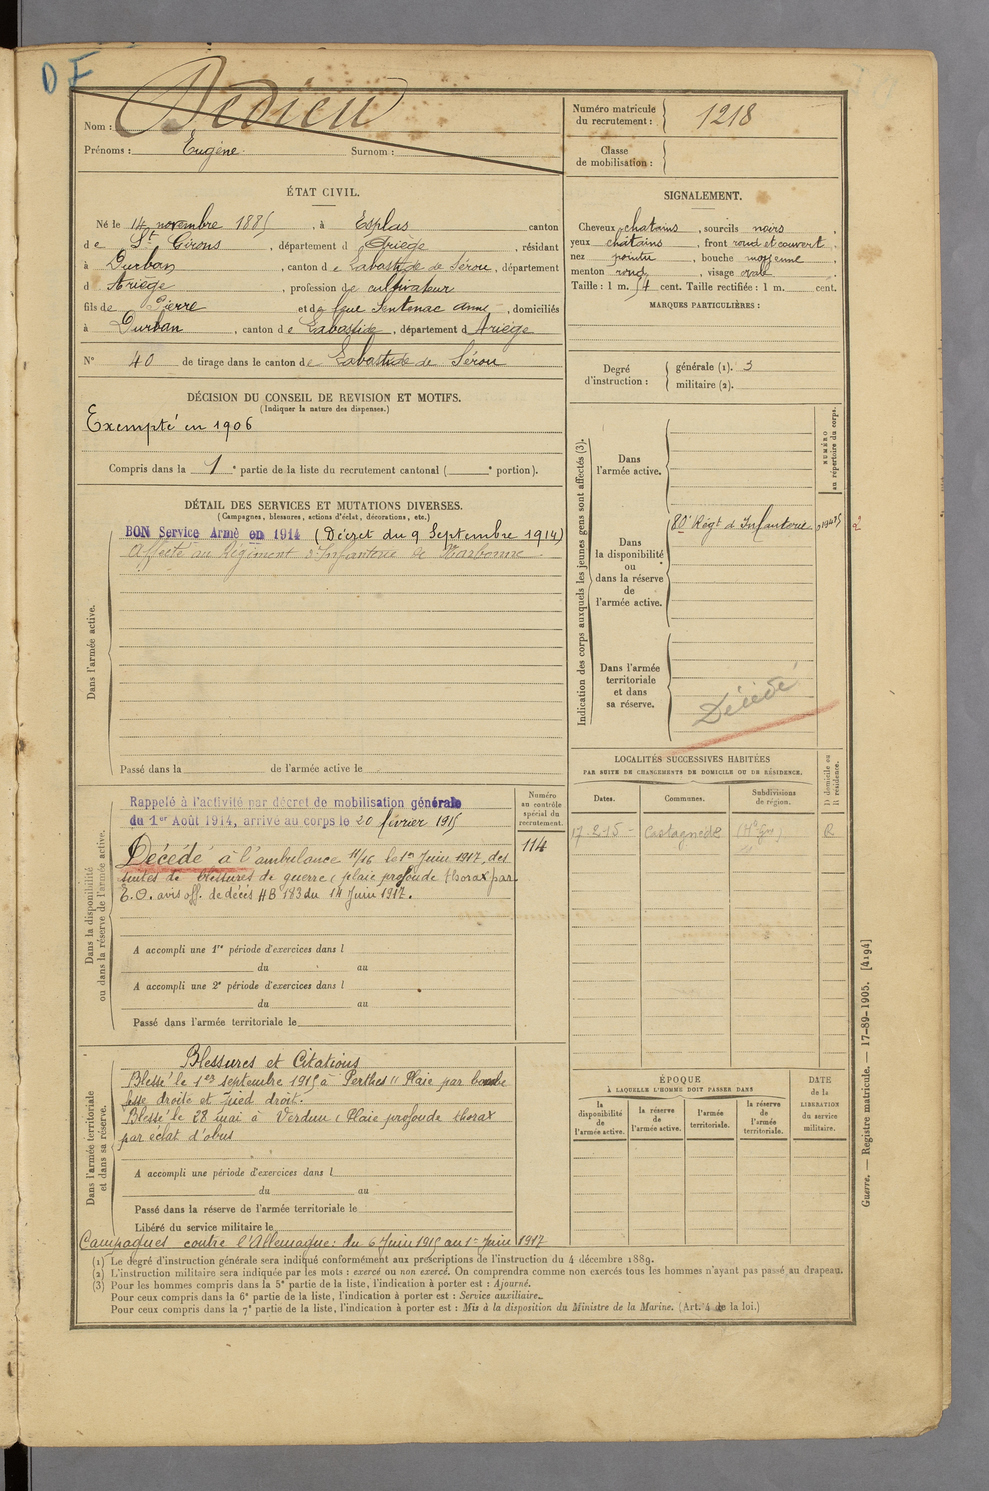 D F
Nom : Dedieu
Prénoms : Eugène Surnom :
Numéro matricule
du recrutement : 1218
Classe
de mobilisation :
ÉTAT CIVIL.
Né le 14 novembre 1885, à Esplas canton
de St Girons, département d Ariège, résidant
à Durban, canton de Labastide de Sérou, département
d Ariège, profession de cultivateur
fils de Pierre et de feue Sentenac Anne, domiciliés
à Durban, canton de Labastide, département d Ariège
N° 40 de tirage dans le canton de Labastide de Sérou
SIGNALEMENT.
Cheveux chatains, sourcils noirs,
yeux chatains, front rond et couvert,
nez pointu, bouche moyenne,
menton rond, visage ovale
Taille : 1 m. 54 cent. Taille rectifiée : 1 m. cent.
MARQUES PARTICULIÈRES :
Degré
d'instruction :
générale (1). 3
militaire (2).
DÉCISION DU CONSEIL DE REVISION ET MOTIFS.
(Indiquer la nature des dispenses.)
Exempté en 1906
Compris dans la 1e partie de la liste du recrutement cantonal ( e portion).
DÉTAIL DES SERVICES ET MUTATIONS DIVERSES.
(Campagnes, blessures, actions d'éclat, décorations, etc.)
Dans l'armée active.
BON Service Armé en 1914 (Décret du 9 Septembre 1914)
Affecté au Régiment d'Infanterie de Narbonne.
Passé dans la de l'armée active le
Indication des corps auxquels les jeunes gens sont affectés (3).
NUMÉRO
au répertoire du corps.
Dans
l'armée active.
80e Régt d'Infanterie
Dans
la disponibilité
ou
dans la réserve
de
l'armée active.
Dans l'armée
territoriale
et dans
sa réserve.
Décédé
LOCALITÉS SUCCESSIVES HABITÉES
PAR SUITE DE CHANGEMENTS DE DOMICILE OU DE RÉSIDENCE.
Dates.
Communes.
Subdivisions
de région.
D domicile ou
R résidence.
17-2-15 - Castagnède (Hte Gne) R
Dans la disponibilité
ou dans la réserve de l'armée active.
Numéro
au contrôle
spécial du
recrutement.
114
Rappelé à l'activité par décret de mobilisation générale
du 1er Août 1914, arrivé au corps le 20 février 1915
Décédé à l'ambulance 11/16 le 1er Juin 1917, des
suites de blessures de guerre (plaie profonde thorax par
E.O. avis off. de décès HB 183 du 14 Juin 1917.
A accompli une 1re période d'exercices dans l
du au
A accompli une 2e période d'exercices dans l
du au
Passé dans l'armée territoriale le
Dans l'armée territoriale
et dans sa réserve.
Blessures et Citations
Blessé le 1er septembre 1915 à Perthes " Plaie par bombe
fesse droite et pied droit.
Blessé le 28 mai à Verdun (Plaie profonde thorax
par éclat d'obus
A accompli une période d'exercices dans l
du au
Passé dans la réserve de l'armée territoriale le
Libéré du service militaire le
Campagnes contre l'Allemagne : du 6 Juin 1915 au 1er Juin 1917
ÉPOQUE
À LAQUELLE L'HOMME DOIT PASSER DANS
la
disponibilité
de
l'armée active.
la réserve
de
l'armée active.
l'armée
territoriale.
la réserve
de
l'armée
territoriale.
DATE
de la
LIBÉRATION
du service
militaire.
(1) Le degré d'instruction générale sera indiqué conformément aux prescriptions de l'instruction du 4 décembre 1889.
(2) L'instruction militaire sera indiquée par les mots : exercé ou non exercé. On comprendra comme non exercés tous les hommes n'ayant pas passé au drapeau.
(3) Pour les hommes compris dans la 5e partie de la liste, l'indication à porter est : Ajourné.
Pour ceux compris dans la 6e partie de la liste, l'indication à porter est : Service auxiliaire.
Pour ceux compris dans la 7e partie de la liste, l'indication à porter est : Mis à la disposition du Ministre de la Marine. (Art. 4 de la loi.)
Guerre. — Registre matricule. — 17-89-1905. [4194]